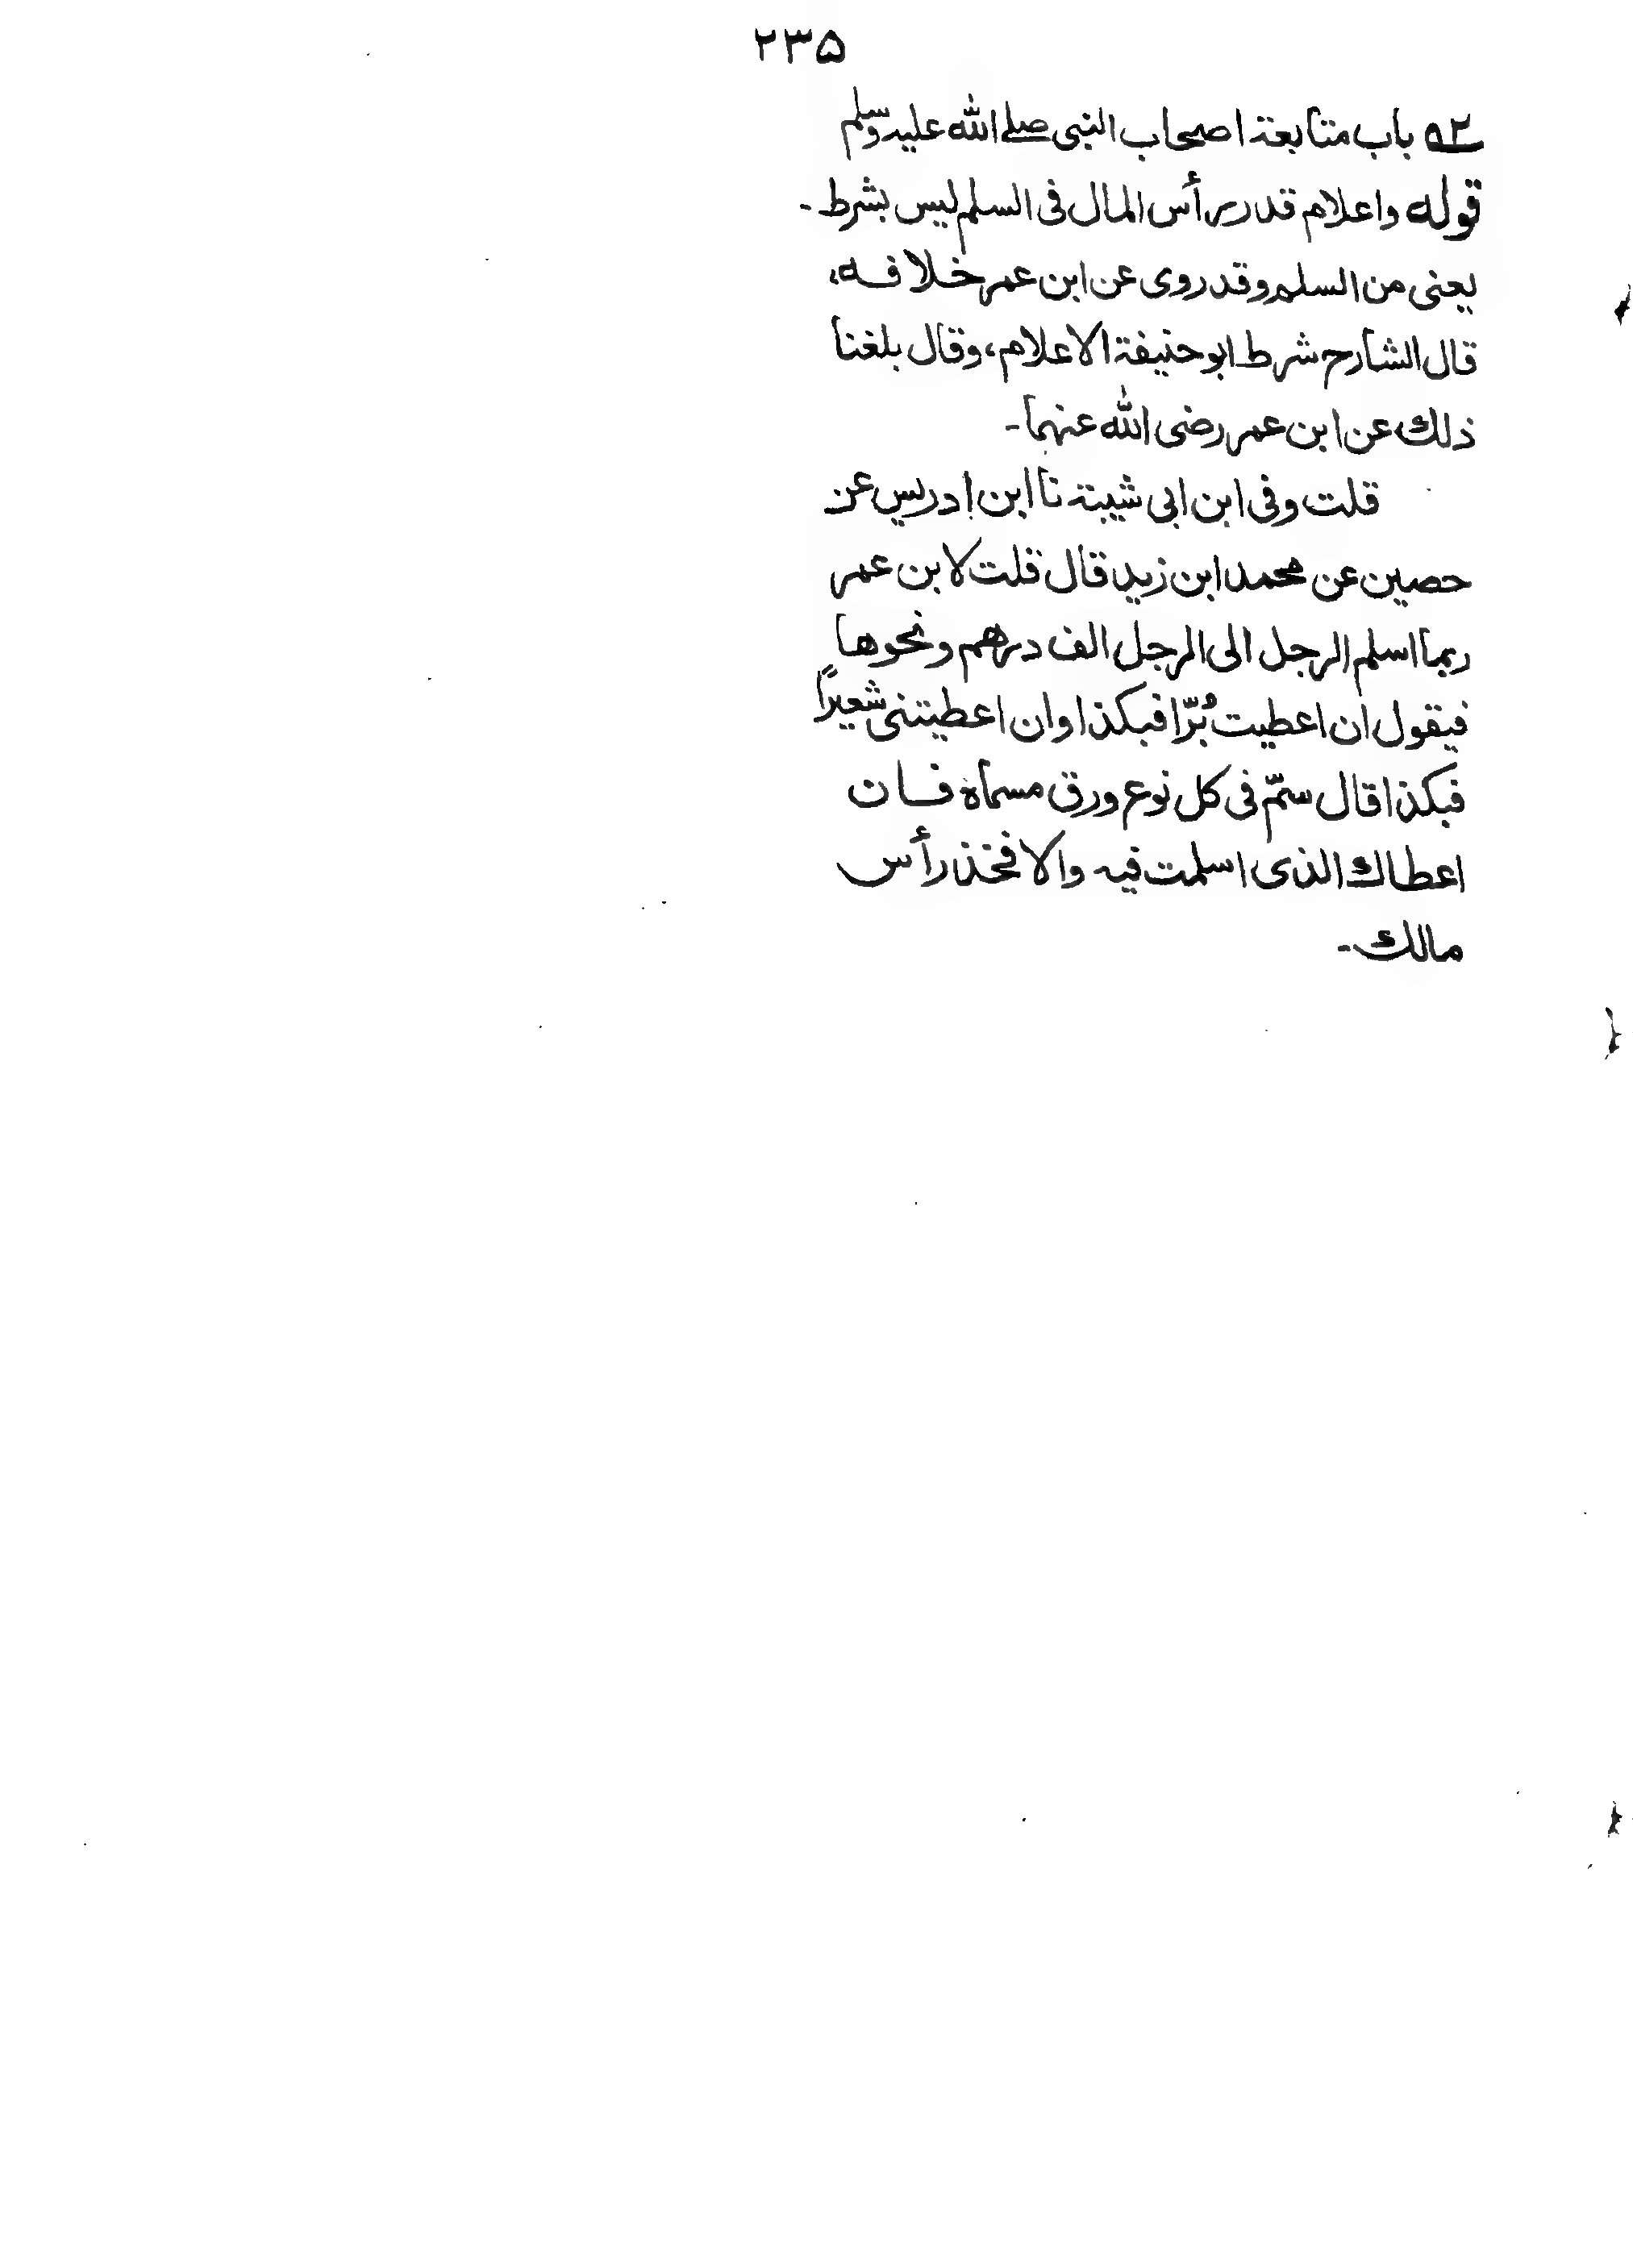 ۲۳۵
۵۲ باب متابعة اصحاب النبی صلے الله علیه وسلم
قوله واعلام قدر رأس المال فی السلم لیس بشرط۔
یعنی من السلم وقد روی عن ابن عمر خلافه،
قال الشارح شرط ابو حنیفة الاعلام، وقال بلغنا
ذلك عن ابن عمر رضی الله عنهما۔
قلت وفی ابن ابی شیبة نا ابن إدریس عن
حصین عن محمد ابن زید قال قلت لابن عمر
ربما اسلم الرجل الی الرجل الف درهم ونحوها
فیقول ان اعطیت بُرّا فبکذا وان اعطیتنی شعیرًا
فبکذا قال سمّ فی کل نوع ورق مسماة فان
اعطاك الذی اسلمت فیه والا فخذ رأس
مالك۔